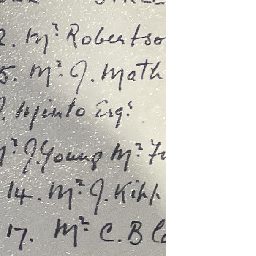 2. Mr Robertso
5. Mr J. Math
Minto Esqr
Mr J. Young Mr Fu
14. Mr J. Kipp
17. Mr C. B Co